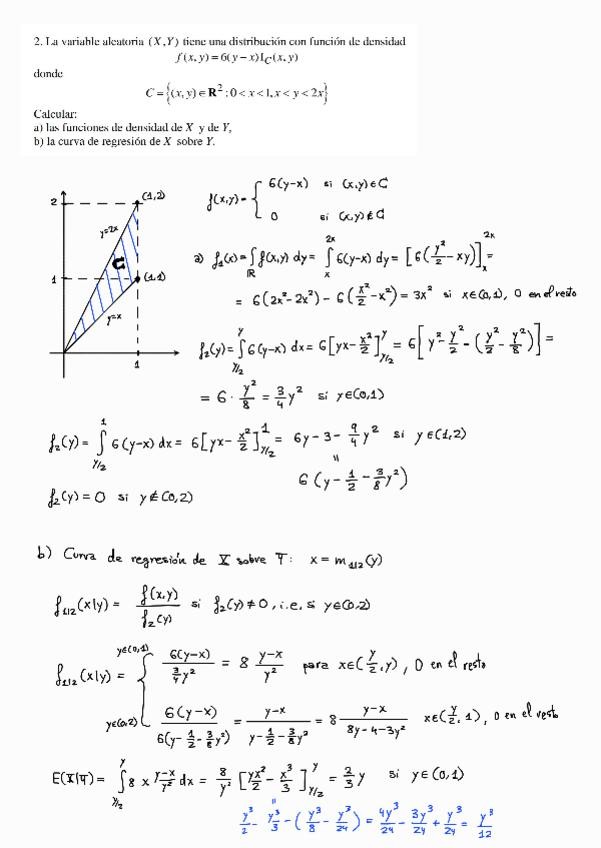 2. La variable aleatoria (X,Y) tiene una distribución con función de densidad
f(x,y)=6(y−x)I_C(x,y)
donde
C={(x,y)∈R²:0<x<1,x<y<2x}
Calcular:
a) las funciones de densidad de X y de Y,
b) la curva de regresión de X sobre Y.
2
(1,2)
y=2x
C
1
(1,1)
y=x
1
f(x,y)= { 6(y-x) si (x,y)∈C
0 si (x,y)∉C
a) f₁(x)=∫_ℝ f(x,y) dy= ∫_x^{2x} 6(y-x) dy= [6(y²/2 - xy)]_x^{2x} =
= 6(2x²-2x²) - 6(x²/2 - x²) = 3x² si x∈(0,1), 0 en el resto
f₂(y)= ∫_{y/2}^y 6(y-x) dx = 6[yx - x²/2]_{y/2}^y = 6[y² - y²/2 - (y²/2 - y²/8)] =
= 6 · y²/8 = 3/4 y² si y∈(0,1)
f₂(y)= ∫_{y/2}^1 6(y-x) dx = 6[yx - x²/2]_{y/2}^1 = 6y - 3 - 9/4 y² si y∈(1,2)
=
6(y - 1/2 - 3/8 y²)
f₂(y)=0 si y∉(0,2)
b) Curva de regresión de X sobre Y: x=m₁/₂(y)
f₁/₂(x|y) = f(x,y)/f₂(y) si f₂(y)≠0, i.e. si y∈(0,2)
f₁/₂(x|y) = { y∈(0,1) 6(y-x)/(3/4 y²) = 8 (y-x)/y² para x∈(y/2, y), 0 en el resto
y∈(0,2) 6(y-x)/(6(y - 1/2 - 3/8 y²)) = (y-x)/(y - 1/2 - 3/8 y²) = 8 (y-x)/(8y-4-3y²) x∈(y/2, 1), 0 en el resto
E(X|Y) = ∫_{y/2}^y 8 x (y-x)/y² dx = 8/y² [yx²/2 - x³/3]_{y/2}^y = 2/3 y si y∈(0,1)
=
y³/2 - y³/3 - (y³/8 - y³/24) = 4y³/24 - 3y³/24 + y³/24 = y³/12